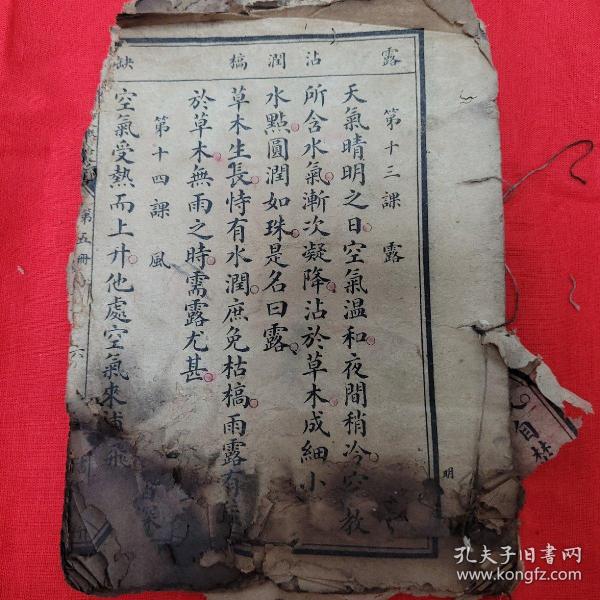 露 沾 潤 槁 缺
第十三課 露
天氣晴明之日空氣溫和夜間稍冷空
所含水氣漸次凝降沾於草木成細小
水點圓潤如珠是名曰露
草木生長恃有水潤庶免枯槁雨露有
於草木無雨之時需露尤甚
第十四課 風
空氣受熱而上升他處空氣來
第五冊
六
教
明
自
孔夫子旧書网
www.kongfz.com